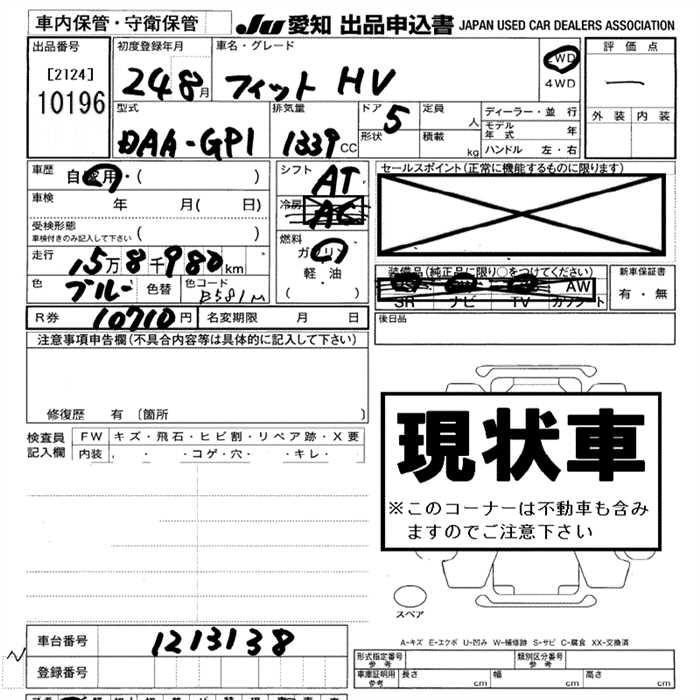 車内保管・守衛保管
JU 愛知 出品申込書 JAPAN USED CAR DEALERS ASSOCIATION
出品番号
[2124]
10196
初度登録年月
24 8月
車名・グレード
フィット HV
2WD
4WD
評価点
一
外装 内装
型式
DAA-GP1
排気量
1339cc
ドア 5
形状
定員 人
積載 kg
ディーラー・並行
モデル年式 年
ハンドル 左・右
車歴 自家用・( )
車検 年 月( 日)
受検形態
車検付きのみ記入して下さい ( )
走行 15万8千980km
色 ブルー 色替 色コード B581M
シフト AT
冷房 AC
燃料
ガソリン
軽・油
( )
セールスポイント(正常に機能するものに限ります)
装備品(純正品に限り○をつけてください)
AW
SR ナビ TV カワシート
新車保証書
有・無
R券 10710円 名変期限 月 日
後日品
注意事項申告欄(不具合内容等は具体的に記入して下さい)
修復歴 有 [箇所 ]
検査員記入欄
FW キズ・飛石・ヒビ割・リペア跡・X要
内装 ・ ・コゲ・穴・ ・キレ・
現状車
※このコーナーは不動車も含み
ますのでご注意下さい
スペア
A-キズ E-エクボ U-凹み W-補修跡 S-サビ C-腐食 XX-交換済
車台番号 1213138
登録番号
形式指定番号 参考
類別区分番号 参考
車庫証明用 参考 長さ cm 幅 cm 高さ cm